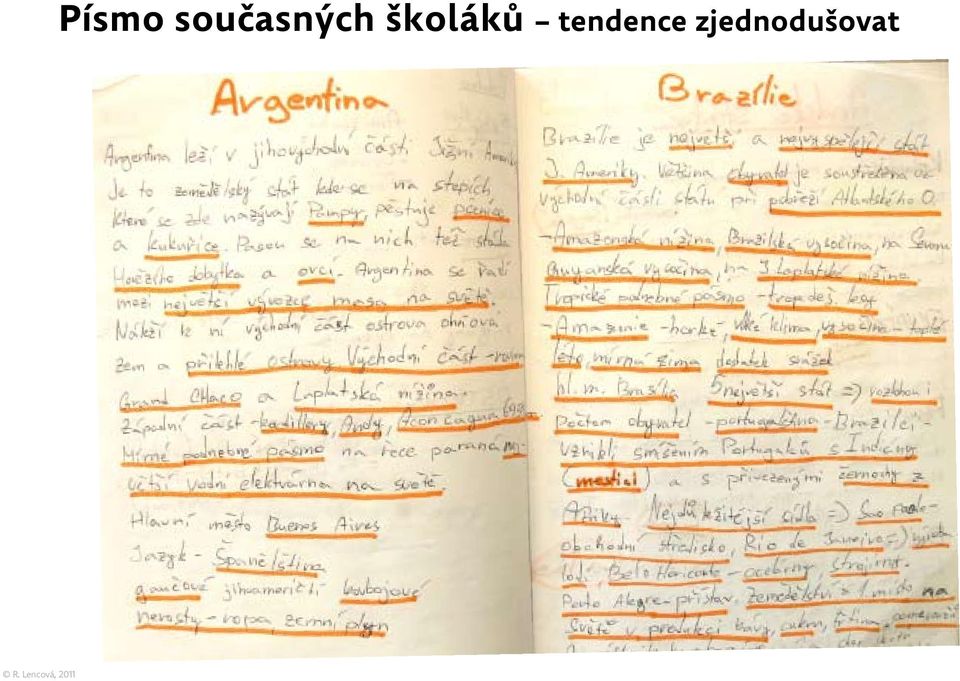 Písmo současných školáků – tendence zjednodušovat
Argentina
Argentina leží v jihovýchodní části Jižní Ameriky
Je to zemědělský stát kde se na stepích
které se zde nazývají Pampy, pěstuje pčenice
a kukuřice. Pasou se na nich též stáda
Hovězího dobytka a ovcí. Argentina se řadí
mezi největší vývozce masa na světě.
Náleží k ní východní část ostrova ohňová
zem a přilehlé ostrovy. Východní část -
Grand Chaco a Laplatská nížina.
Západní část - kordillery, Andy, Aconcagua
Mírné podnebné pásmo na řece parana
větší vodní elektrárna na světě.
Hlavní město Buenos Aires
Jazyk - Španělština
gaučové jihoameričtí
nerosty - ropa, zemní plyn
Brazílie
Brazílie je největší a nejvyspělejší stát
J. Ameriky. Většina obyvatel je soustředěna
východní části státu při pobřeží Atlantského O.
- Amazonská nížina, Brazilská vysočina, na Severu
Guyanská vysočina, na J Laplatská nížina
Tropické podnebné pásmo - trop. deš. lesy
- Amazonie - horké, vlhké klima, vysočina - teplé
léto, mírná zima dostatek srážek
hl. m. Brasilia 5 největší stát => rozlohou i
Počtem obyvatel - portugalština - Brazilci -
vznikli smíšením Portugalců s Indiány
(mestici) a s přivezenými černochy z
Afriky - Nejdůležitější sídla => Sao Paolo -
obchodní středisko, Rio de Janeiro =>
lodí Belo Horizonte - strojírny.
Porto Alegre - přístav. Zemědělství = 1. místo na
Světě v produkci kávy, cukru,
© R. Lencová, 2011